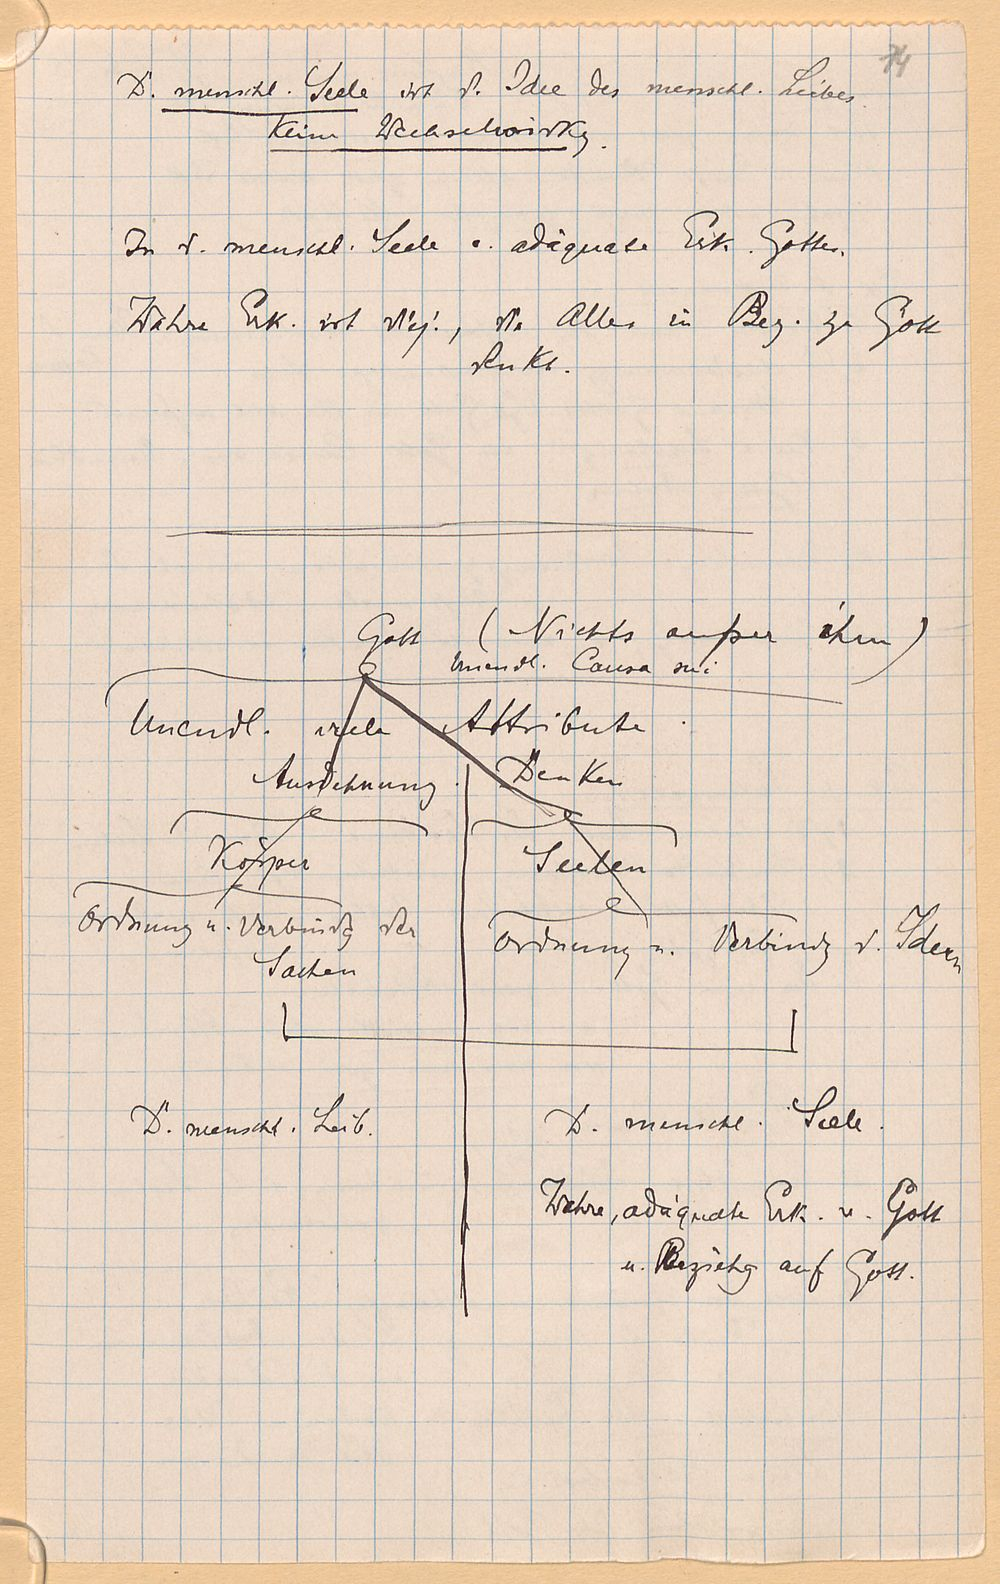 74
D. menschl. Seele ist d. Idee des menschl. Leibes
Keine Wechselwirkg.
In d. menschl. Seele e. adäquate Erk. Gottes.
Wahre Erk. ist diej., die Alles in Bez. zu Gott
denkt.
Gott (Nichts außer ihm)
Unendl. Causa sui
Unendl. viele Attribute
Ausdehnung. Denken
Körper Seelen
Ordnung u. Verbindg der Sachen
Ordnung u. Verbindg d. Ideen
D. menschl. Leib. D. menschl. Seele.
Wahre, adäquate Erk. v. Gott
u. Beziehg auf Gott.